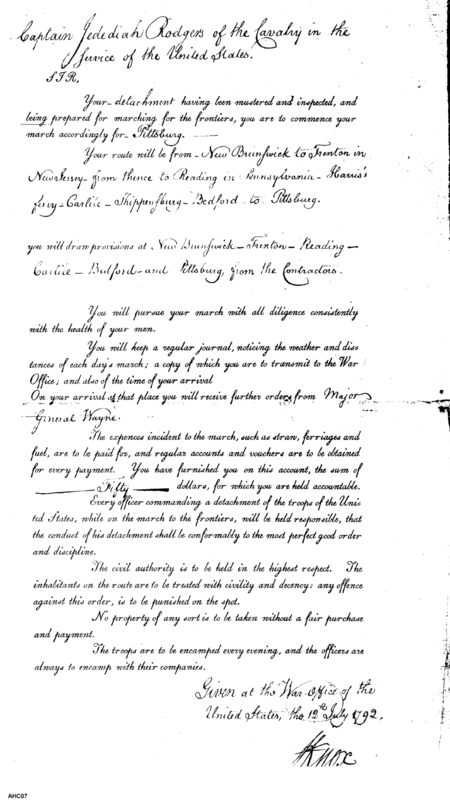 Captain Jedediah Rodgers of the Cavalry in the
Service of the United States.
SIR,
Your detachment having been mustered and inspected, and
being prepared for marching for the frontiers, you are to commence your
march accordingly for Pittsburg.
Your route will be from New Brunswick to Trenton in
New Jersey - from thence to Reading in Pennsylvania - Harris's
ferry - Carlile - Shippensburg - Bedford to Pittsburg.
you will draw provisions at New Brunswick - Trenton - Reading -
Carlile - Bedford - and Pittsburg, from the Contractors.
You will pursue your march with all diligence consistently
with the health of your men.
You will keep a regular journal, noticing the weather and dis-
tances of each day's march; a copy of which you are to transmit to the War
Office; and also of the time of your arrival
On your arrival at that place you will receive further orders from Major
General Wayne.
The expences incident to the march, such as straw, ferriages and
fuel, are to be paid for, and regular accounts and vouchers are to be obtained
for every payment. You have furnished you on this account, the sum of
Fifty dollars, for which you are held accountable.
Every officer commanding a detachment of the troops of the Uni-
ted States, while on the march to the frontiers, will be held responsible, that
the conduct of his detachment shall be conformably to the most perfect good order
and discipline.
The civil authority is to be held in the highest respect. The
inhabitants on the route are to be treated with civility and decency: any offence
against this order, is to be punished on the spot.
No property of any sort is to be taken without a fair purchase
and payment.
The troops are to be encamped every evening, and the officers are
always to encamp with their companies.
Given at the War-Office of the
United States, the 12th July 1792.
HKnox
AHC07